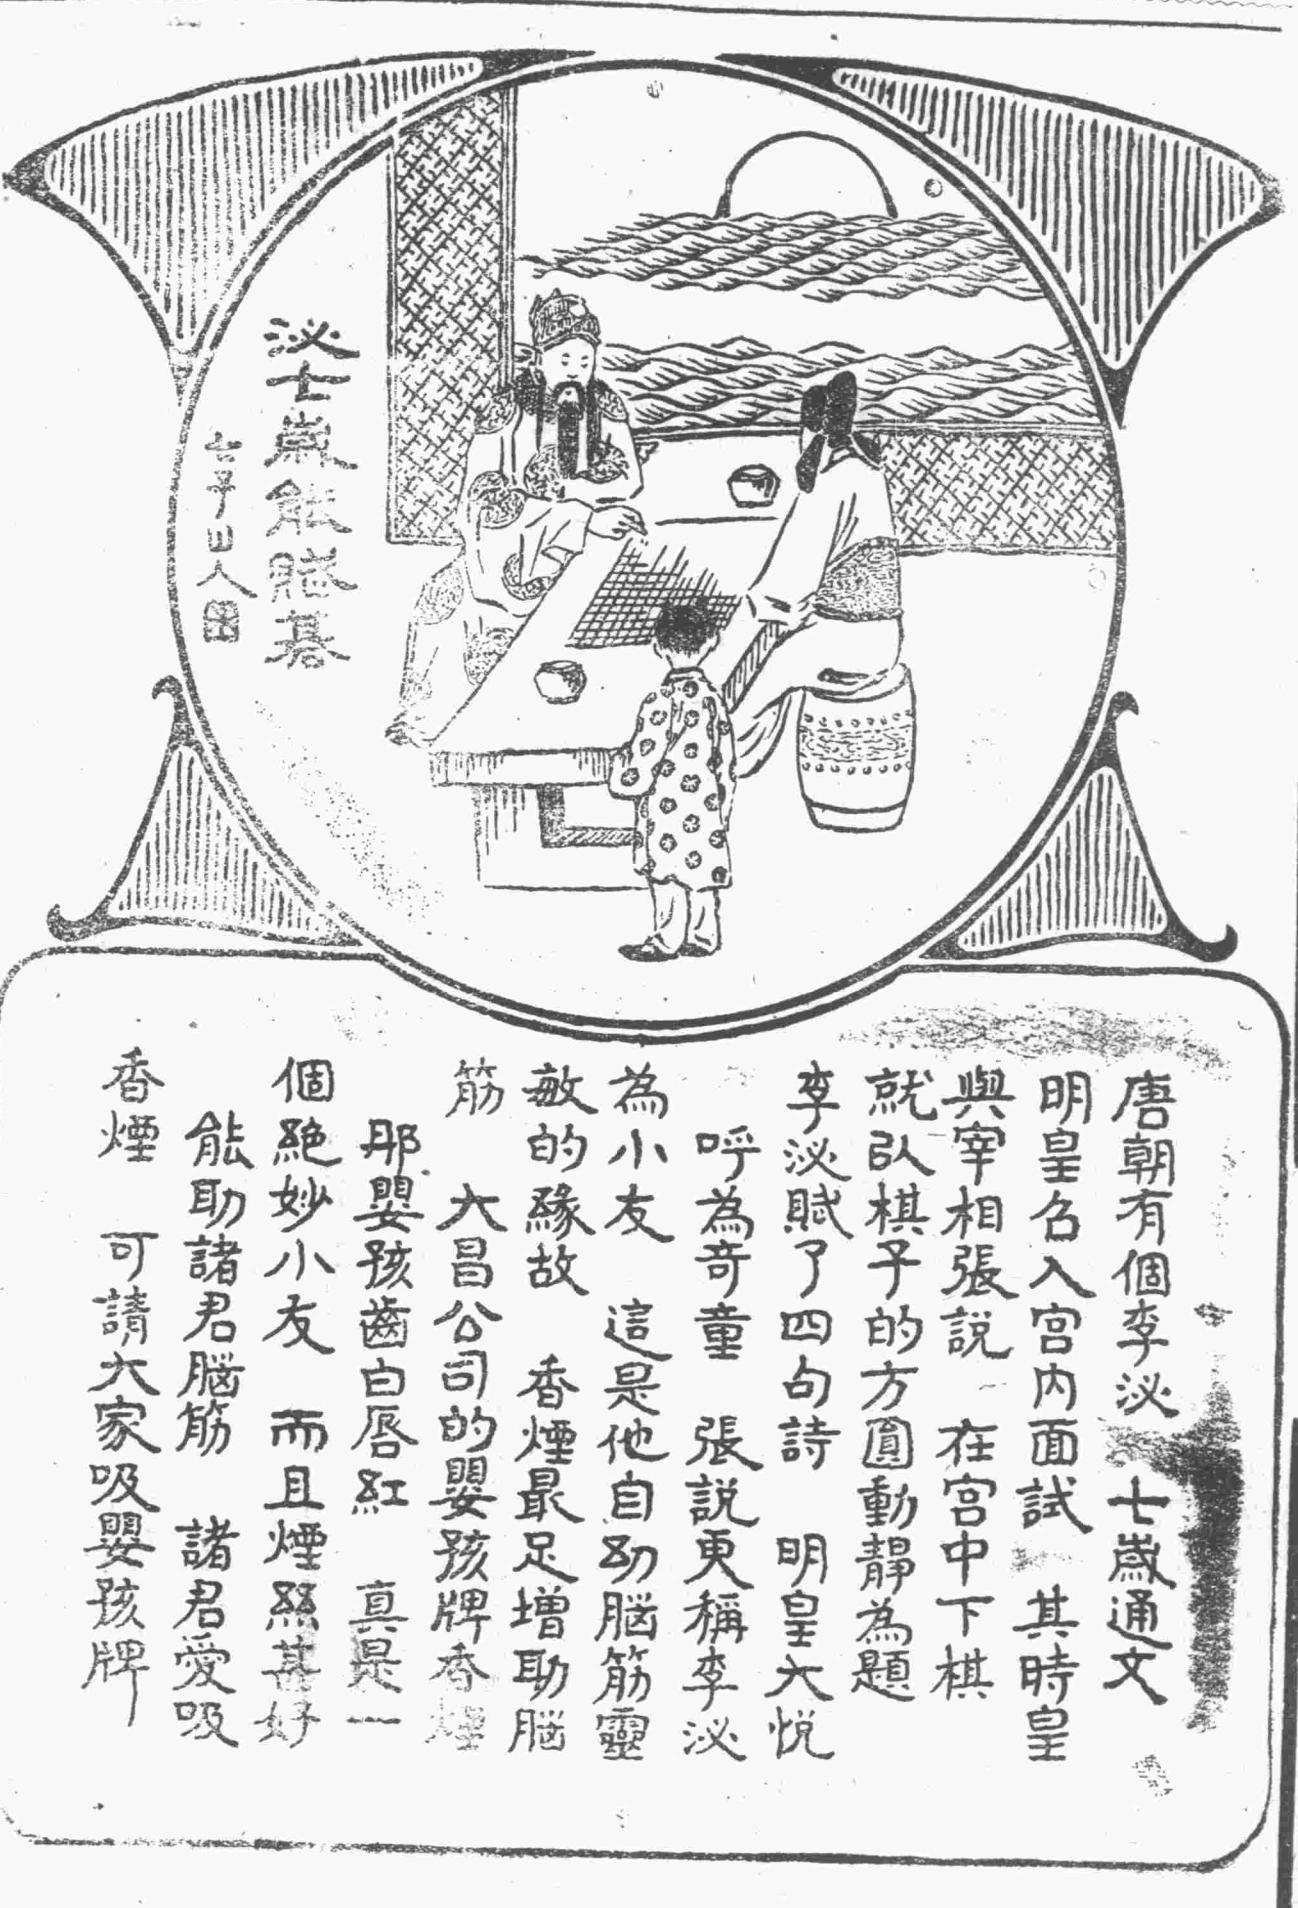 泌七歲能賦碁
山人
唐朝有個李泌 七歲通文
明皇召入宮内面試 其時皇
與宰相張説 在宮中下棋
就以棋子的方圓動靜為題
李泌賦了四句詩 明皇大悅
呼為奇童 張説更稱李泌
為小友 這是他自幼脳筋靈
敏的緣故 香煙最足增助脳
筋 大昌公司的嬰孩牌香煙
那嬰孩齒白唇紅 真是一
個絕妙小友 而且煙絲甚好
能助諸君脳筋 諸君愛吸
香煙 可請大家吸嬰孩牌